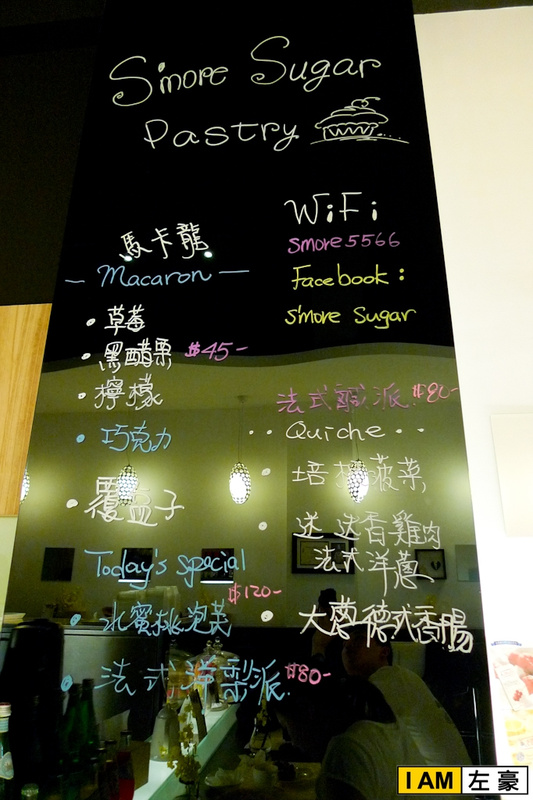 S'more Sugar
Pastry
馬卡龍
— Macaron —
• 草莓
• 黑醋栗 $45-
• 檸檬
• 巧克力
• 覆盆子
Today's special
$120-
• 水蜜桃泡芙
• 法式洋梨派 $80-
WiFi
smore5566
Facebook:
s'more Sugar
法式鹹派 $80-
•• Quiche ••
• 培根菠菜
• 迷迭香雞肉
法式洋蔥
• 大蒜德式香腸
I AM 左豪